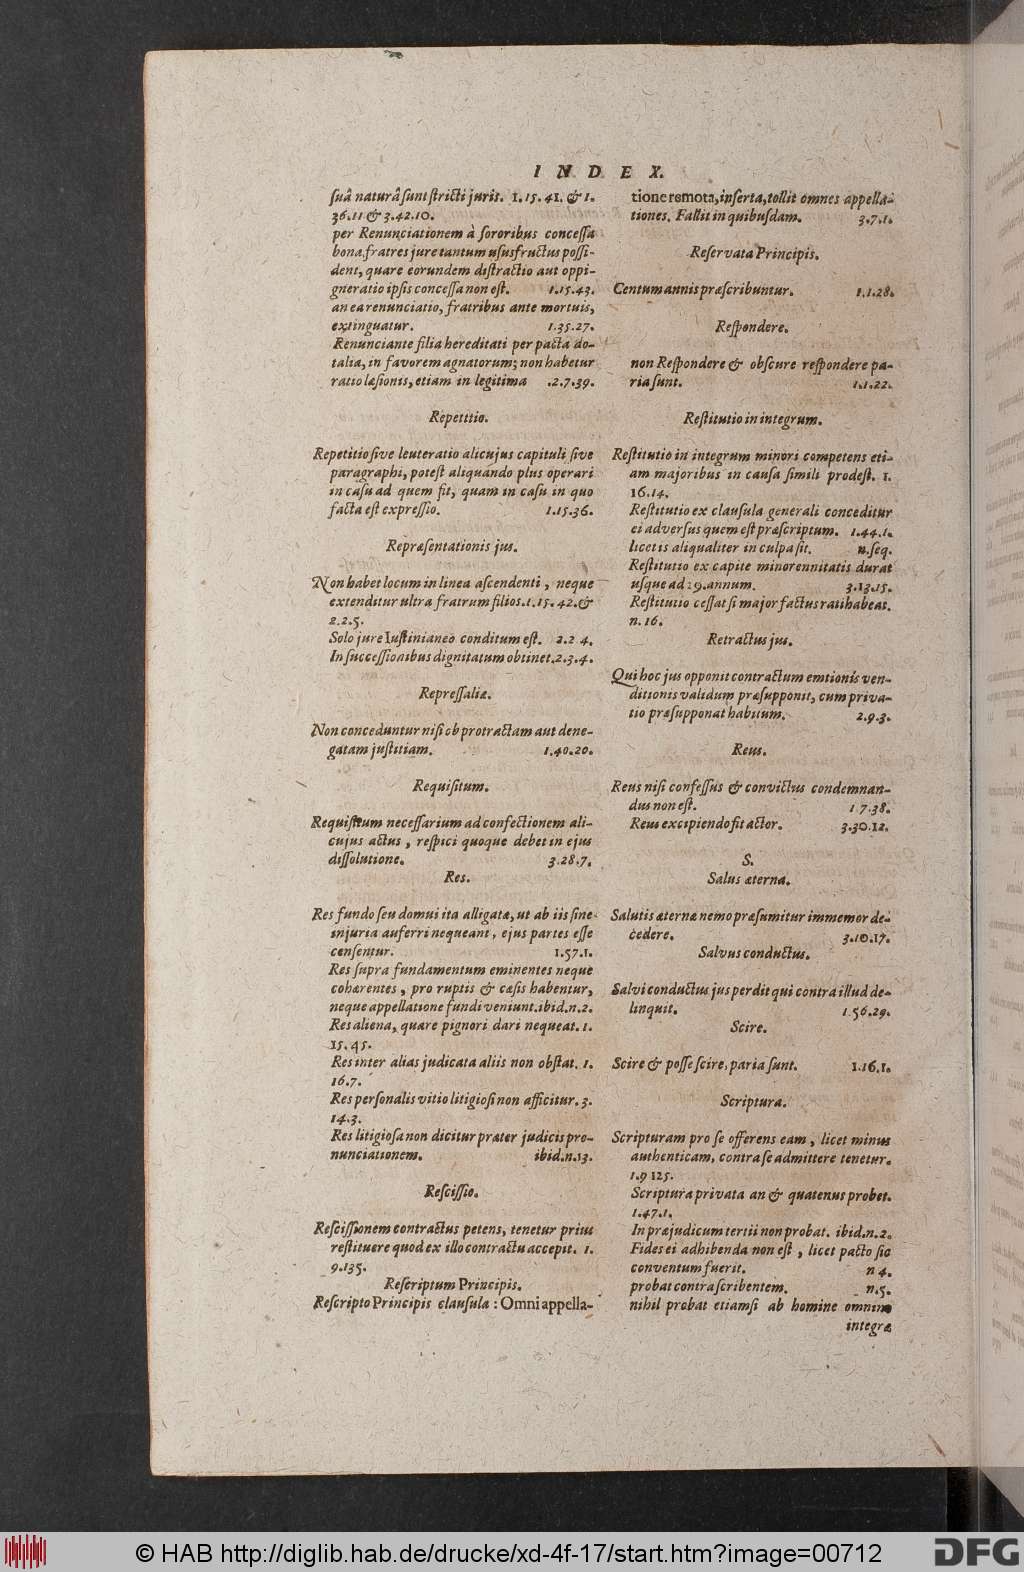 INDEX.
ſuâ naturâ ſunt ſtricti juris. 1. 15. 41. & 1.
36. 11 & 3. 42. 10.
per Renunciationem à ſororibus conceſſa
bona, fratres jure tantum uſusfructus poſſi-
dent, quare eorundem diſtractio aut oppi-
gneratio ipſis conceſſa non eſt. 1.15.43.
an ea renunciatio, fratribus ante mortuis,
extinguatur. 1.35.27.
Renunciante filia hereditati per pacta do-
talia, in favorem agnatorum; non habetur
ratio læſionis, etiam in legitima .2.7.39.
Repetitio.
Repetitio ſive leuteratio alicujus capituli ſive
paragraphi, poteſt aliquando plus operari
in caſu ad quem fit, quam in caſu in quo
facta eſt expreſſio. 1.15.36.
Repræſentationis jus.
Non habet locum in linea aſcendenti, neque
extenditur ultra fratrum filios. 1. 15. 42. &
2.2.5.
Solo jure Iuſtinianeo conditum eſt. 2.2 4.
In ſucceſſionibus dignitatum obtinet. 2.3.4.
Repreſſaliæ.
Non conceduntur niſi ob protractam aut dene-
gatam juſtitiam. 1.40.20.
Requiſitum.
Requiſitum neceſſarium ad confectionem ali-
cujus actus, reſpici quoque debet in ejus
diſſolutione. 3.28.7.
Res.
Res fundo ſeu domui ita alligatæ, ut ab iis ſine
injuria auferri nequeant, ejus partes eſſe
cenſentur. 1.57.1.
Res ſupra fundamentum eminentes neque
cohærentes, pro ruptis & cæſis habentur,
neque appellatione fundi veniunt. ibid.n.2.
Res aliena, quare pignori dari nequeat. 1.
15. 45.
Res inter alias judicata aliis non obſtat. 1.
16.7.
Res perſonalis vitio litigioſi non afficitur. 3.
14.3.
Res litigioſa non dicitur præter judicis pro-
nunciationem. ibid.n.13.
Reſciſſio.
Reſciſſionem contractus petens, tenetur prius
reſtituere quod ex illo contractu accepit. 1.
9.135.
Reſcriptum Principis.
Reſcripto Principis clauſula: Omni appella-
tione remota, inſerta, tollit omnes appella-
tiones. Fallit in quibuſdam. 3.7.1.
Reſervata Principis.
Centum annis præſcribuntur. 1.1.28.
Reſpondere.
non Reſpondere & obſcure reſpondere pa-
ria ſunt. 1.1.22.
Reſtitutio in integrum.
Reſtitutio in integrum minori competens eti-
am majoribus in cauſa ſimili prodeſt. 1.
16.14.
Reſtitutio ex clauſula generali conceditur
ei adverſus quem eſt præſcriptum. 1.44.1.
licet is aliqualiter in culpa ſit. n.ſeq.
Reſtitutio ex capite minorennitatis durat
uſque ad 29. annum. 3.13.15.
Reſtitutio ceſſat ſi major factus ratihabeat.
n. 16.
Retractus jus.
Qui hoc jus opponit contractum emtionis ven-
ditionis validum præſupponit, cum priva-
tio præſupponat habitum. 2.9.3.
Reus.
Reus niſi confeſſus & convictus condemnan-
dus non eſt. 1 7.38.
Reus excipiendo fit actor. 3.30.12.
S.
Salus æterna.
Salutis æternæ nemo præſumitur immemor de-
cedere. 3.10.17.
Salvus conductus.
Salvi conductus jus perdit qui contra illud de-
linquit. 1 56.29.
Scire.
Scire & poſſe ſcire, paria ſunt. 1.16.1.
Scriptura.
Scripturam pro ſe offerens eam, licet minus
authenticam, contra ſe admittere tenetur.
1.9 125.
Scriptura privata an & quatenus probet.
1.47.1.
In præjudicum tertii non probat. ibid.n.2.
Fides ei adhibenda non eſt, licet pacto ſic
conventum fuerit. n 4.
probat contra ſcribentem. n.5.
nihil probat etiamſi ab homine omnino
integræ
© HAB http://diglib.hab.de/drucke/xd-4f-17/start.htm?image=00712
DFG